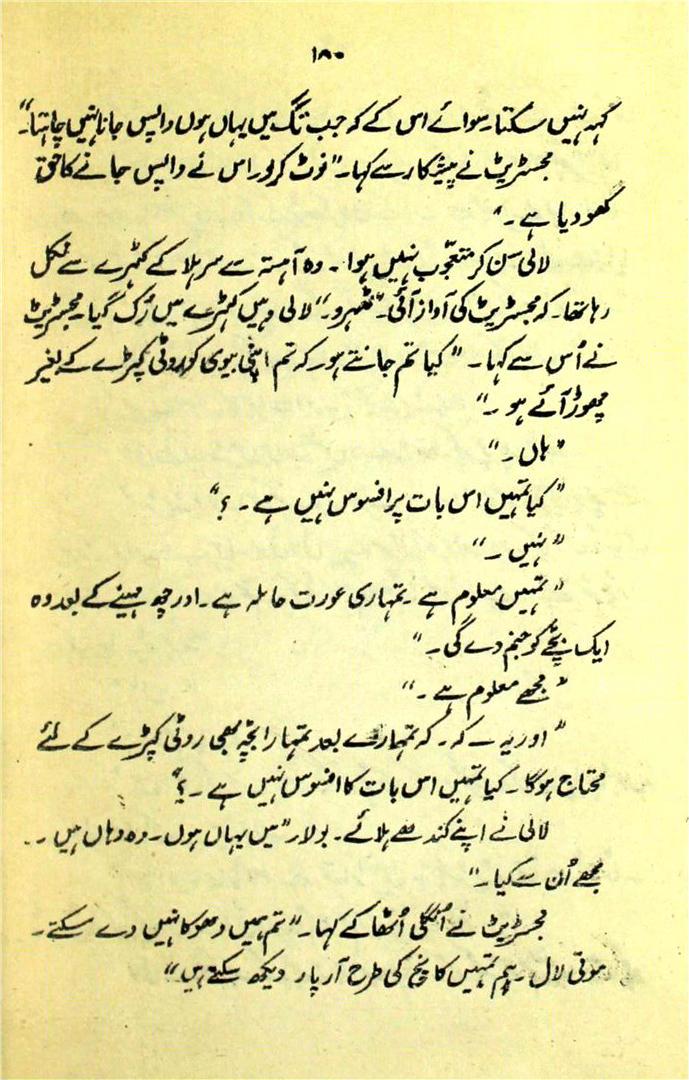 ۱۸۰
کہہ نہیں سکتا۔ سوائے اس کے کہ جب تک میں یہاں ہوں واپس جانا نہیں چاہتا۔"
مجسٹریٹ نے پیشکار سے کہا۔ "نوٹ کرو۔ اس نے واپس جانے کا حق
کھو دیا ہے۔"
لالی سن کر متعجب نہیں ہوا۔ وہ آہستہ سے سر ہلا کے کٹہرے سے نکل
رہا تھا۔ کہ مجسٹریٹ کی آواز آئی۔ "ٹھہرو۔" لالی وہیں کٹہرے میں رُک گیا۔ مجسٹریٹ
نے اُس سے کہا۔ "کیا تم جانتے ہو۔ کہ تم اپنی بیوی کو روٹی کپڑے کے بغیر
چھوڑ آئے ہو۔"
"ہاں۔"
"کیا تمہیں اس بات پر افسوس نہیں ہے۔ ؟"
"نہیں۔"
"تمہیں معلوم ہے۔ تمہاری عورت حاملہ ہے۔ اور چھ مہینے کے بعد وہ
ایک بچّے کو جنم دے گی۔"
"مجھے معلوم ہے۔"
"اور یہ ۔ کہ ۔ کہ تمہارے بعد تمہارا بچّہ بھی روٹی کپڑے کے لئے
محتاج ہوگا۔ کیا تمہیں اس بات کا افسوس نہیں ہے۔ ؟"
لالی نے اپنے کندھے ہلائے۔ بولا۔ "میں یہاں ہوں۔ وہ وہاں ہیں۔۔
مجھے اُن سے کیا۔"
مجسٹریٹ نے اُنگلی اُٹھا کے کہا۔ "تم ہمیں دھوکا نہیں دے سکتے۔
موتی لال۔ ہم تمہیں کانچ کی طرح آر پار دیکھ سکتے ہیں"